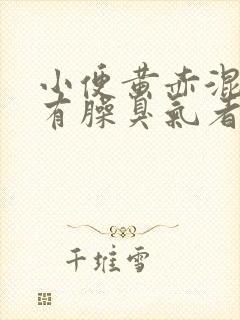 小便黄赤混
有臊臭气者
千堆雪